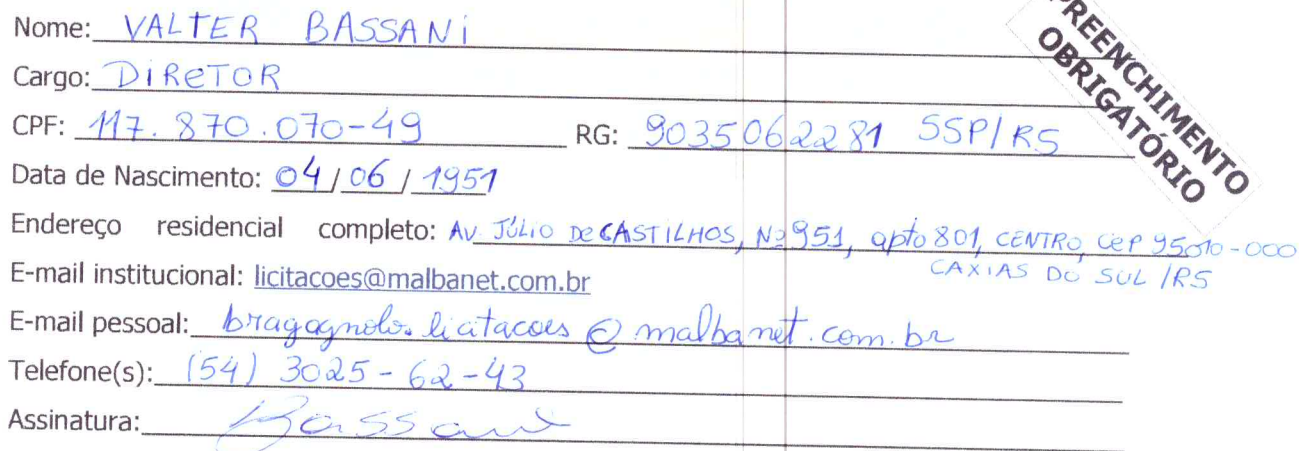 Nome: VALTER BASSANI
Cargo: DIRETOR
CPF: 117.870.070-49 RG: 9035062281 SSP/RS
Data de Nascimento: 04/06/1951
Endereço residencial completo: AV. JÚLIO DE CASTILHOS, Nº 951, apto 801, CENTRO, CEP 95010-000
CAXIAS DO SUL /RS
E-mail institucional: licitacoes@malbanet.com.br
E-mail pessoal: bragagnolo.licitacoes@malbanet.com.br
Telefone(s): (54) 3025-62-43
Assinatura: Bassani
PREENCHIMENTO
OBRIGATÓRIO